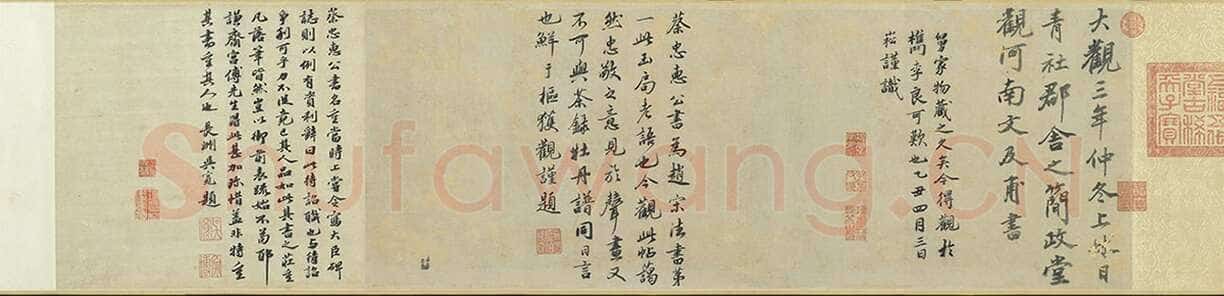 大觀三年仲冬上休日
青社郡舍之簡政堂
觀河南文及甫書
家物藏之久矣今得觀於
檇李良可歎也乙丑四月三日
崧謹識
蔡忠惠公書為趙宋法書第
一此玉局老語也今觀此帖藹
然忠敬之意見於聲畫又
不可與茶錄牡丹譜同日言
也鮮于樞獲觀謹題
蔡忠惠公書名重當時上嘗令寫大臣碑
誌則以例有資利辭曰此待詔職也與待詔
爭利可乎力不從竟已其人品如此其書之莊重
凡落筆皆然豈以御前表疏始不苟耶
謙齋宮傅先生得此甚加珍惜蓋非特重
其書重其人也 長洲吳寬題
Shufawang.CN